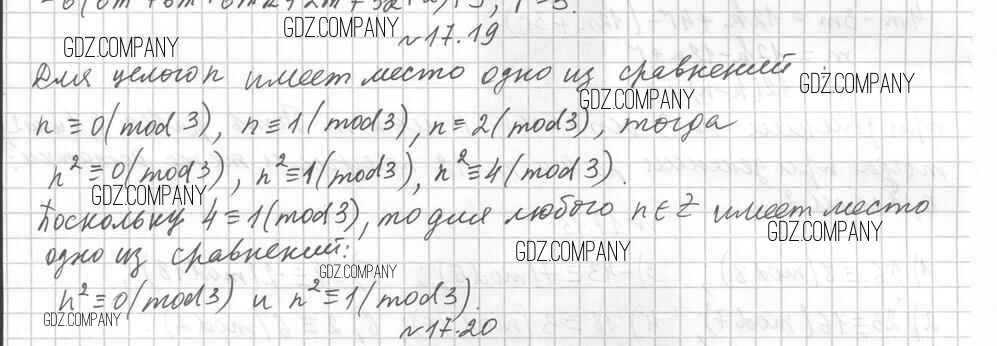 GDZ.COMPANY GDZ.COMPANY
~17.19
Для целого n имеет место одно из сравнений: GDZ.COMPANY
GDZ.COMPANY
n ≡ 0(mod 3), n ≡ 1(mod 3), n ≡ 2(mod 3), тогда
n² ≡ 0(mod 3), n² ≡ 1(mod 3), n² ≡ 4(mod 3).
GDZ.COMPANY
Поскольку 4 ≡ 1(mod 3), то для любого n ∈ Z имеет место
GDZ.COMPANY
одно из сравнений: GDZ.COMPANY
GDZ.COMPANY
n² ≡ 0(mod 3) и n² ≡ 1(mod 3).
GDZ.COMPANY
~17.20